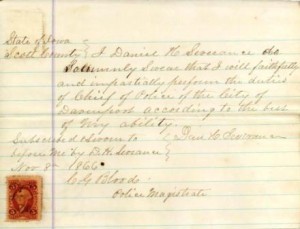 State of Iowa
Scott County } I Daniel H. Severance do
Solemnly Swear that I will faithfully
and impartially perform the duties
of Chief of Police of the City of
Davenport according to the best
of my ability.
Subscribed & Sworn to } Dan H. Severance
before me by D.H. Severance
Nov 8th 1866
Police Magistrate